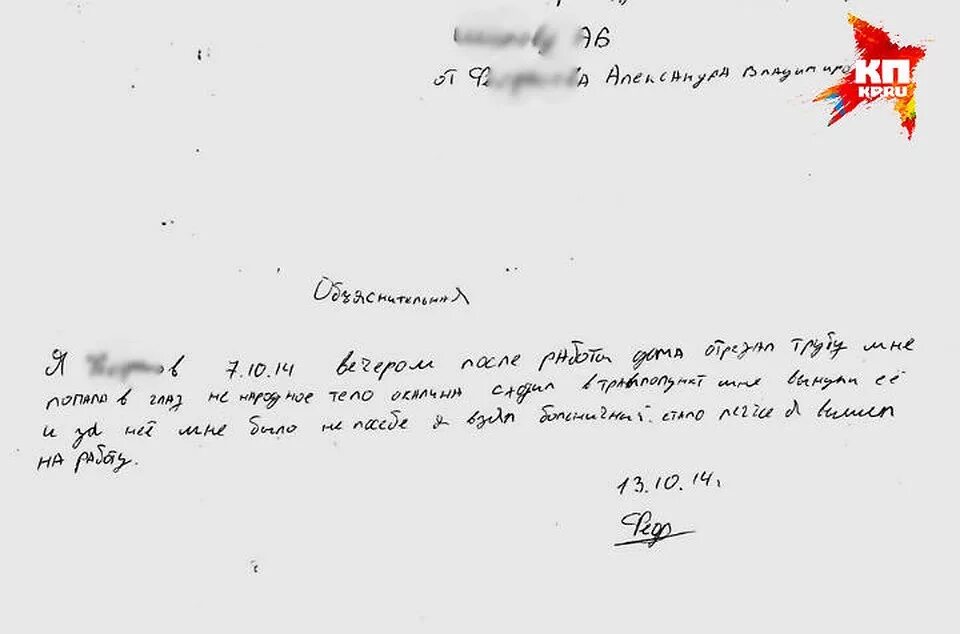 АВ
КП
KP.RU
от Александра Владимиро
Объяснительная
Я 7.10.14 вечером после работы дома отрезал трубу мне
попала в глаз не народное тело окалина сходил в травмопункт мне вынули её
и за неё мне было не посебе я взял больничный. стало легче я вышел
на работу.
13.10.14г